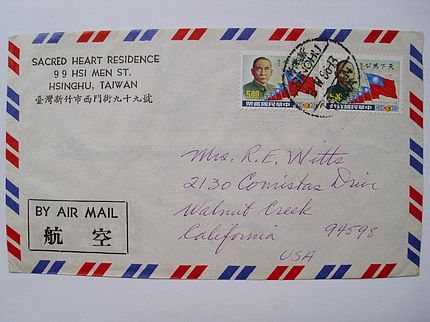 SACRED HEART RESIDENCE
99 HSI MEN ST.
HSINGHU, TAIWAN
臺灣新竹市西門街九十九號
5.00
中華民國郵票
天下為公
Mrs. R. E. Witts
2130 Comistas Drive
Walnut Creek
California 94598
USA
BY AIR MAIL
航 空